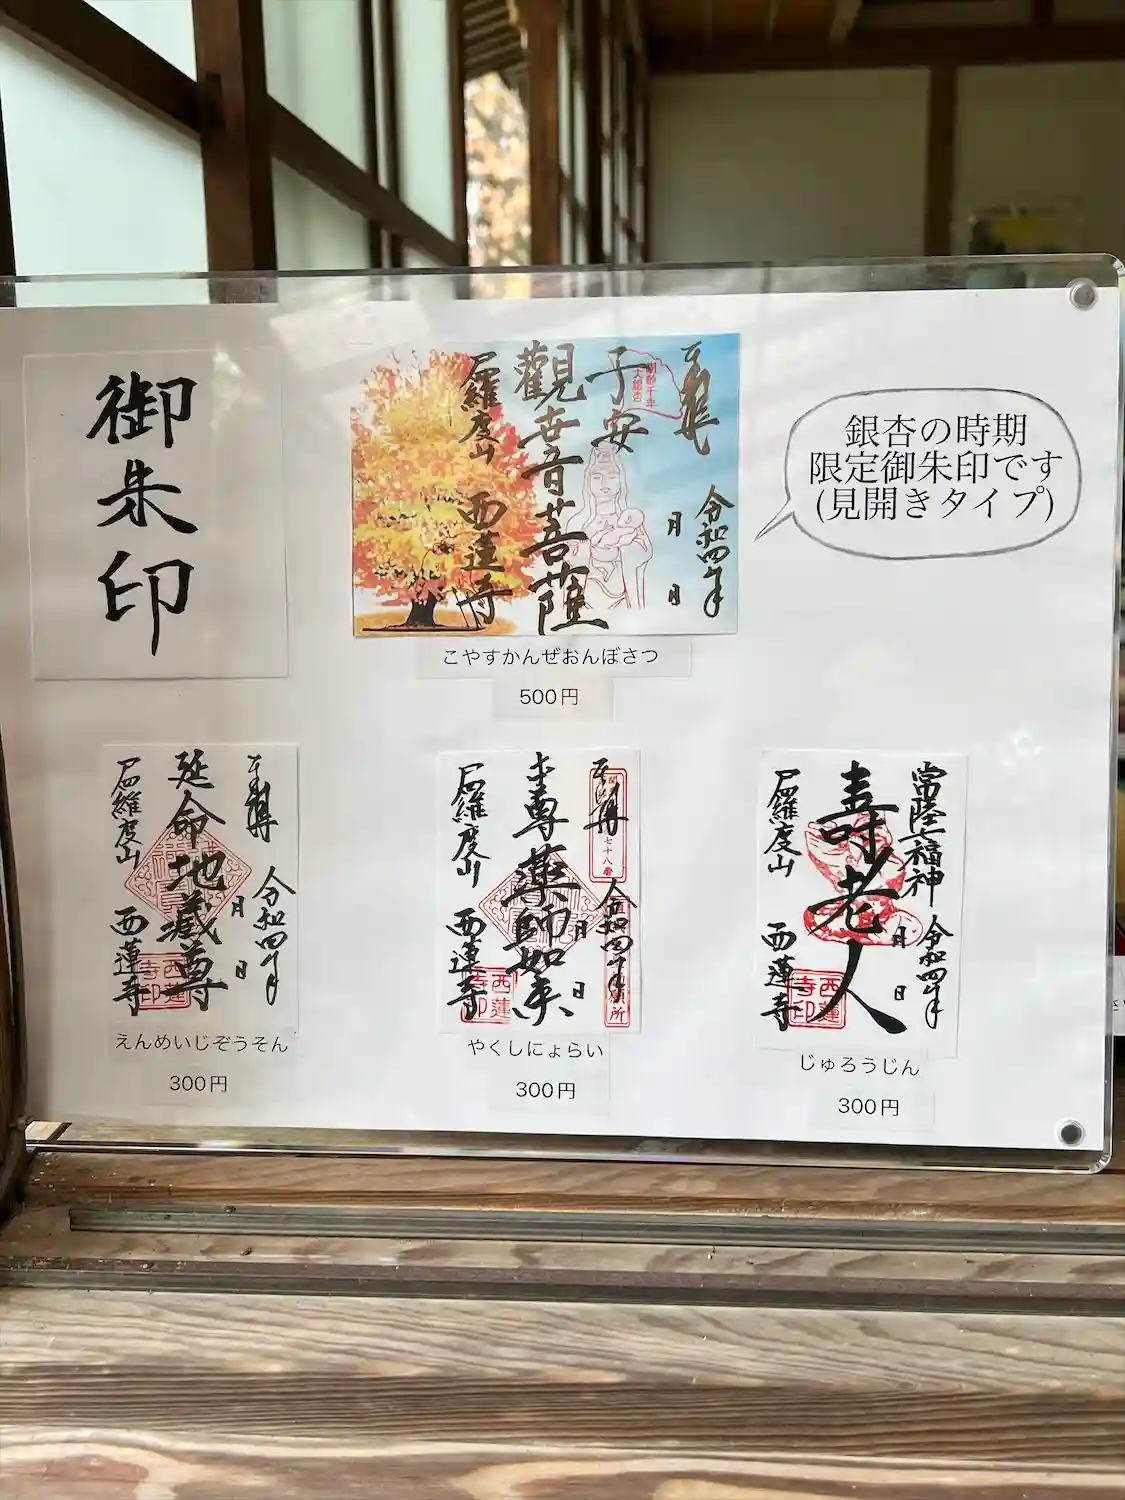 御朱印
奉拝
令和四年
月
日
樹齢千年
大銀杏
子安
觀世音菩薩
尸羅度山
西蓮寺
銀杏の時期
限定御朱印です
(見開きタイプ)
こやすかんぜおんぼさつ
500円
奉拝
令和四年
月
日
延命地蔵尊
尸羅度山
西蓮寺
西蓮
寺印
えんめいじぞうそん
300円
奉拝
七十八番
令和四年
月
日
本尊
薬師如来
尸羅度山
西蓮寺
西蓮
やくしにょらい
300円
常陸七福神
令和四年
月
日
寿老人
尸羅度山
西蓮寺
西蓮
寺印
じゅろうじん
300円